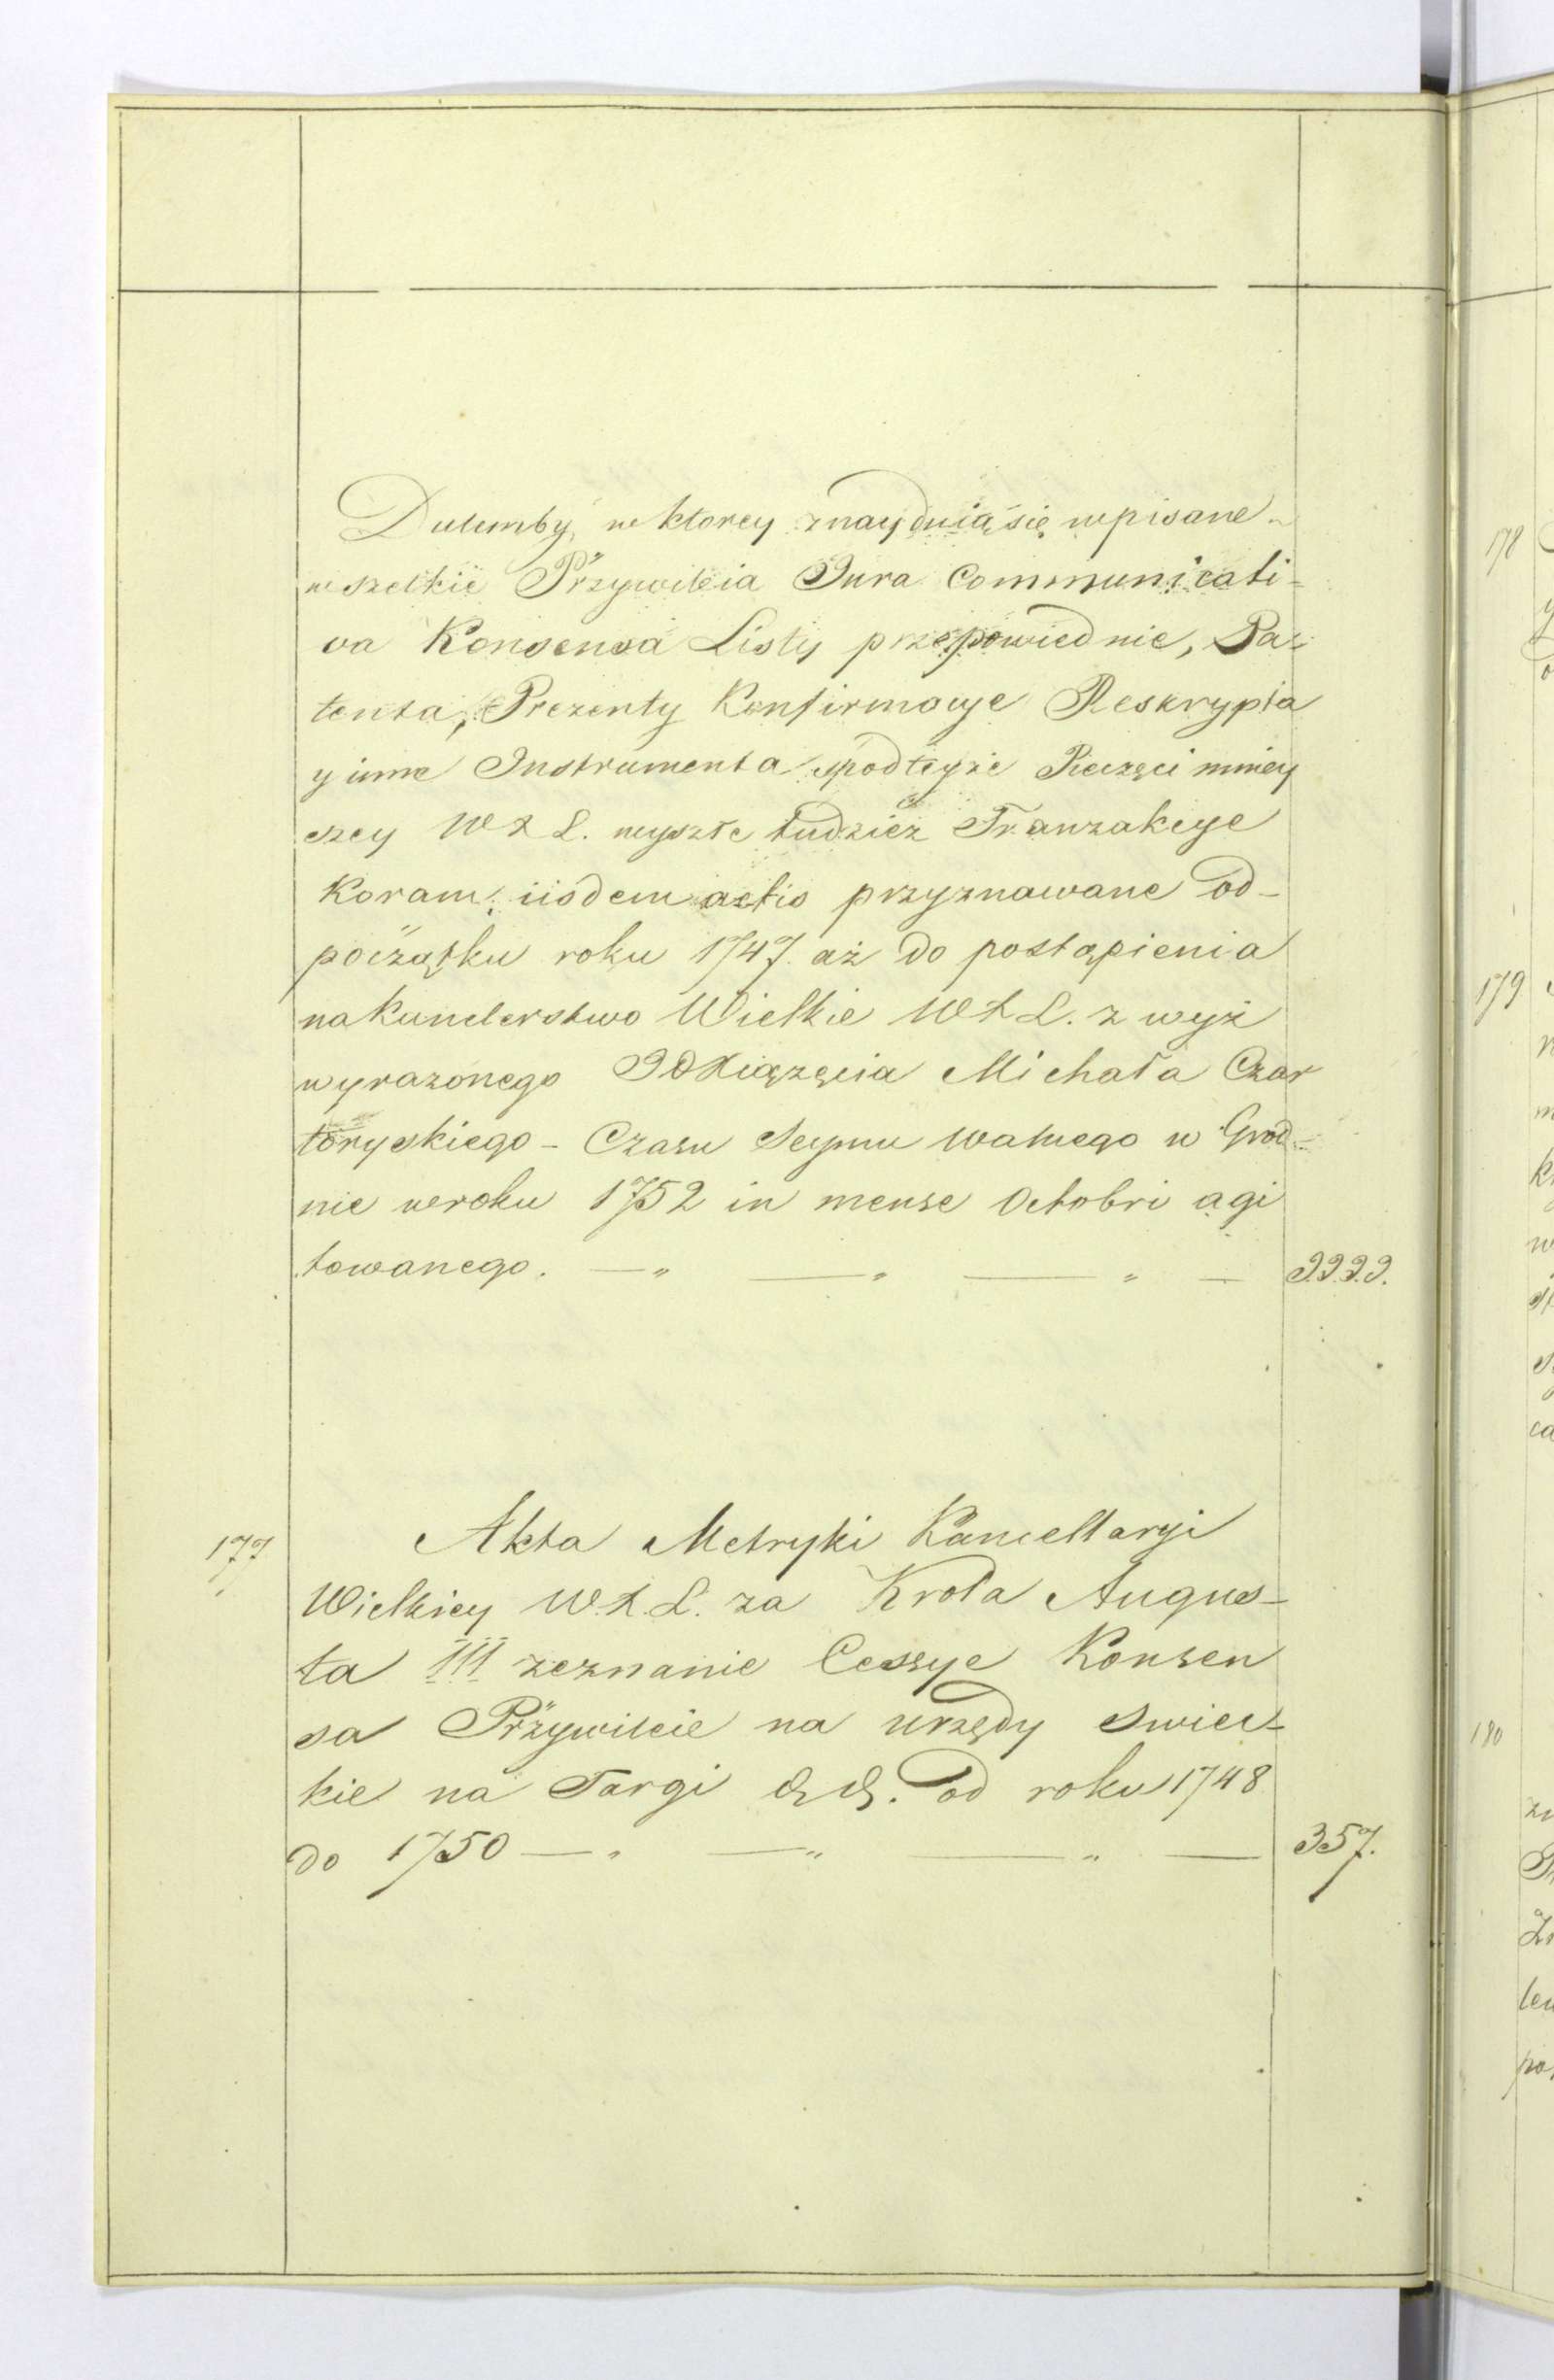 Dulemby, w ktorey znayduią się wpisane
wszelkie Przywileia Jura Communicati-
va Konsensa Listy przepowiednie, Pa-
tenta, Prezenty Konfirmacye Reskrypta
y inne Instrumenta spod teyże Pieczęci mniey
szey WXL. wyszłe tudzież Tranzakcye
Koram iisdem actis przyznawane od-
początku roku 1747. aż do postąpienia
na Kanclerstwo Wielkie WXL. z wyż
wyrazonego JO Xiązęcia Michała Czar
toryskiego - Czasu Seymu walnego w Grod-
nie w roku 1752 in mense Octobri agi
towanego. — " — " — " —
177 Akta Metryki Kancellaryi
Wielkiey W.X.L. za Krola Augus-
ta III zeznanie Cessye Konsen
sa Przywileie na urzędy swiec-
kie na Targi &. &. od roku 1748
do 1750 — " — " — " — 357.
178
179
180